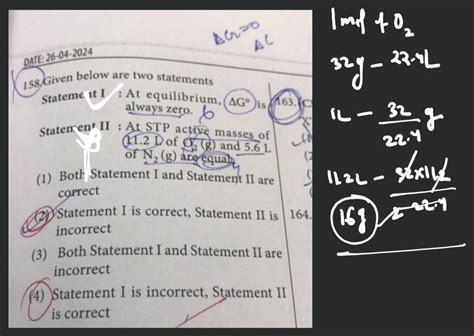 ΔG=0
ΔG
DATE: 26-04-2024
158. Given below are two statements
Statement I : At equilibrium, ΔG° is
always zero.
Statement II : At STP active masses of
11.2 L of O₂ (g) and 5.6 L
of N₂ (g) are equal.
(1) Both Statement I and Statement II are
correct
(2) Statement I is correct, Statement II is
incorrect
(3) Both Statement I and Statement II are
incorrect
(4) Statement I is incorrect, Statement II
is correct
163.
164.
1 mol of O₂
32g – 22.4L
1L – 32/22.4 g
11.2L – 32×11.2/22.4
16g